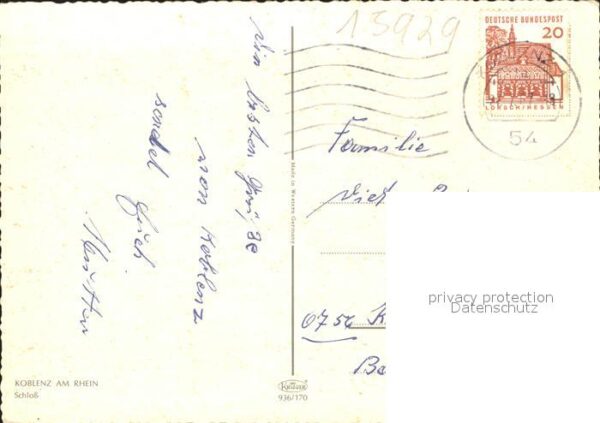 13929
DEUTSCHE BUNDESPOST
20
LORSCH/HESSEN
54
Die besten Grüße
von Koblenz
sendet Euch
Mutter
Made in Western Germany
Familie
privacy protection
Datenschutz
KOBLENZ AM RHEIN
Schloß
Krüger
936/170